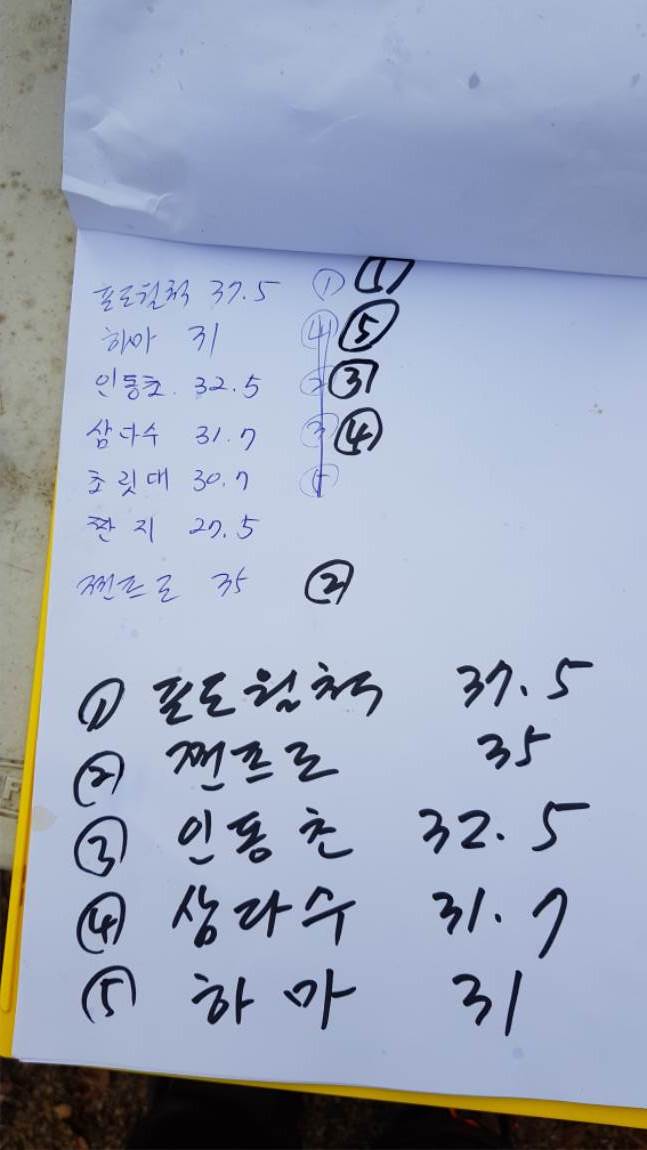 포도월척 37.5 ① ①
하마 31 ④ ⑤
인동초. 32.5 ② ③
삼다수 31.7 ③ ④
초릿대 30.7 ⑤
짠지 27.5
쩐프로 35 ②
① 포도월척 37.5
② 쩐프로 35
③ 인동초 32.5
④ 삼다수 31.7
⑤ 하마 31